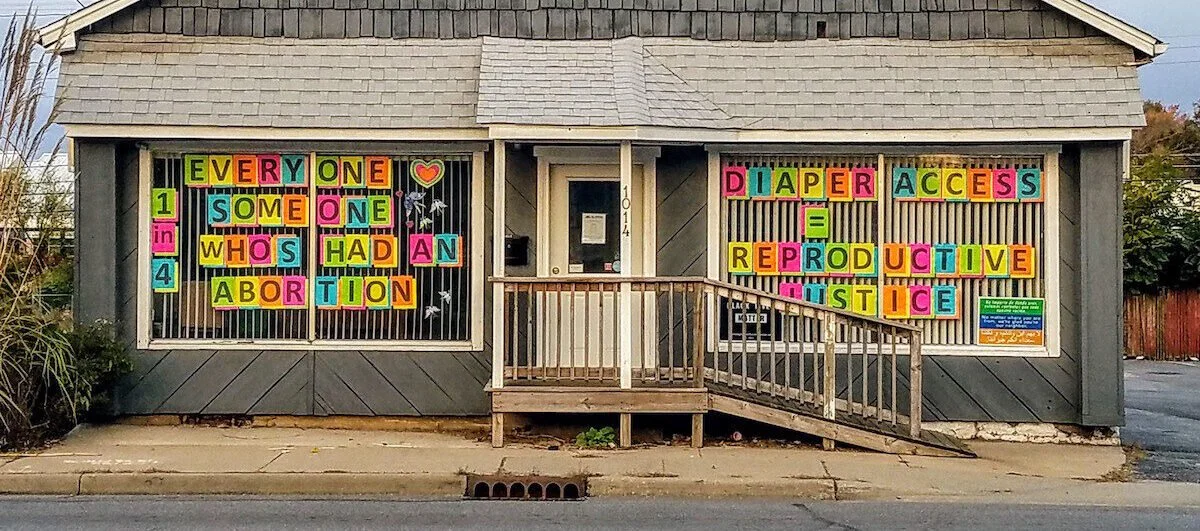 EVERYONE ♥
SOMEONE
WHO'S HAD AN
ABORTION
1
in
4
1014
DIAPER ACCESS
=
REPRODUCTIVE
JUSTICE
BLACK
MATTER
No matter where you are
from, we're glad you're
our neighbor.